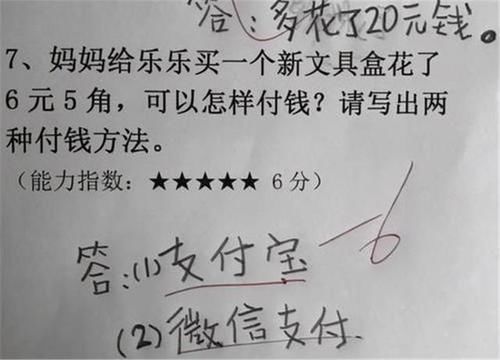 答：多花了20元钱。
7、妈妈给乐乐买一个新文具盒花了
6元5角，可以怎样付钱？请写出两
种付钱方法。
（能力指数：★★★★★ 6分）
答：(1)支付宝 -6
(2)微信支付.